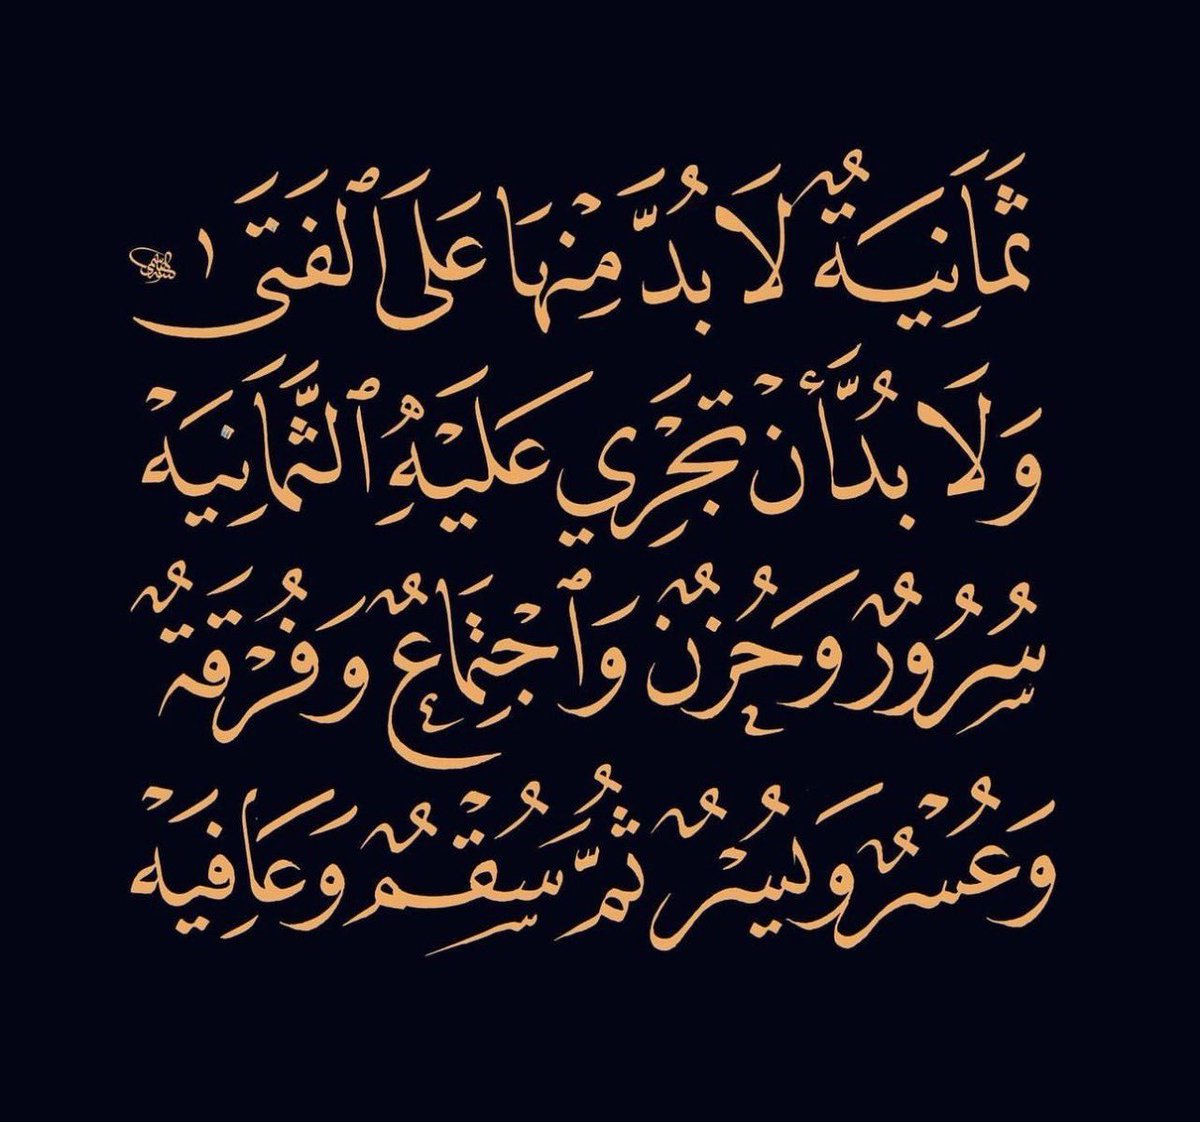 ثَمَانِيَةٌ لَا بُدَّ مِنْهَا عَلَى ٱلْفَتَى ١
وَلَا بُدَّ أَنْ تَجْرِي عَلَيْهِ ٱلثَّمَانِيَهْ
سُرُورٌ وَحُزْنٌ وَٱجْتِمَاعٌ وَفُرْقَةٌ
وَعُسْرٌ وَيُسْرٌ ثُمَّ سُقْمٌ وَعَافِيَهْ